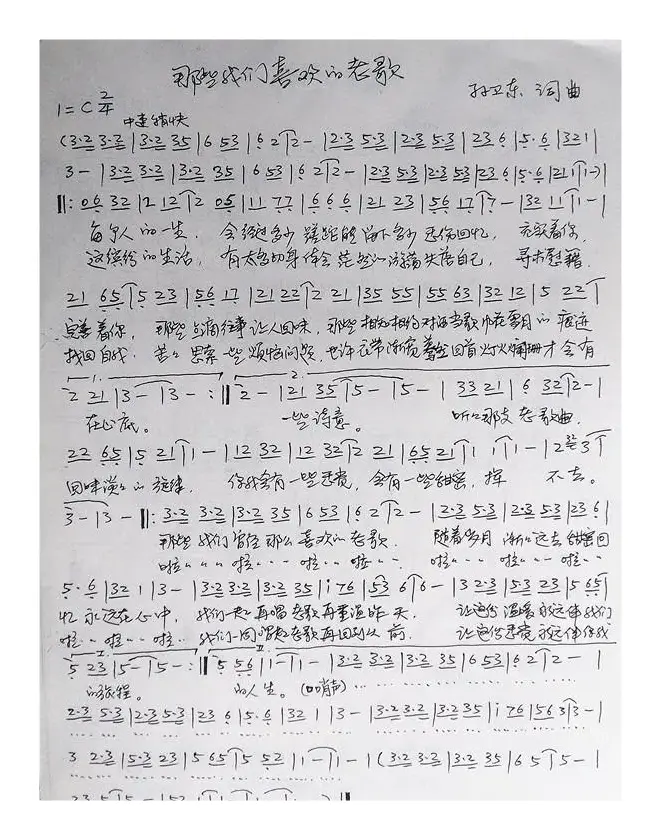 那些我们喜欢的老歌
孙卫东 词曲
1=C 2/4
中速稍快
(3·2 3·2 | 3·2 35 | 6 53 | 6 2 | 2 - | 2·3 5·3 | 2·3 5·3 | 23 6 | 5·6 | 321 |
3 - | 3·2 3·2 | 3·2 35 | 6 53 | 6 2 | 2 - | 2·3 5·3 | 2·3 53 | 23 6 | 5·6 | 21 1 | 1 -)
‖: 06 32 | 12 12 | 2 05 | 11 77 | 6 6 6 | 21 23 | 56 17 | 7 - | 32 11 | 1 - |
每个人的一生, 会经过多少蹉跎能留下多少悲伤回忆, 充实着你,
这缤纷的生活, 有太多切身体会茫然 游荡失落自己, 寻求慰藉
21 65 | 5 23 | 56 17 | 21 22 | 2 21 | 35 55 | 55 63 | 32 12 | 5 22 |
完善着你, 那些点滴往事让人回味, 那些相知相约对酒当歌 在岁月的痕迹
找回自我, 苦苦思索一些烦恼问题, 也许 蓦然回首灯火阑珊才会有
1. 2.
2 21 | 3 - | 3 - :‖ 2 - | 21 35 | 5 - | 5 - | 33 21 | 6 32 | 2 - |
在心底。 一些诗意。 听听那支老歌曲,
22 65 | 5 21 | 1 - | 12 32 | 12 32 | 2 21 | 65 21 | 1 1 | 1 - | 2 32 3 |
回味淡淡的旋律, 你我会有一些悲哀, 会有一些甜蜜, 挥 不去。
3 - | 3 - ‖: 3·2 3·2 | 3·2 35 | 6 53 | 6 2 | 2 - | 2·3 5·3 | 2·3 5·3 | 23 6 |
那些我们曾经那么喜欢的老歌 随着岁月渐渐远去 甜蜜回
啦‥‥ 啦‥‥ 啦‥ 啦‥‥ 啦‥‥ 啦‥‥ 啦‥
5·6 | 32 1 | 3 - | 3·2 3·2 | 3·2 35 | i 76 | 53 6 | 6 - | 3 2·3 | 5·3 23 | 5 65 |
忆 永远在心中, 我们一起再唱老歌再重温昨天, 让这份温暖永远伴我们
啦‥ 啦‥ 啦‥ 我们一同唱起老歌再回到从前, 让这份 永远伴你我
I. II.
5 23 | 5 - | 5 - :‖ 5 56 | 1 - | 1 - | 3·2 3·2 | 3·2 35 | 6 53 | 6 2 | 2 - |
的旅程。 的人生。(口哨声)
2·3 5·3 | 2·3 5·3 | 23 6 | 5·6 | 32 1 | 3 - | 3·2 3·2 | 3·2 35 | i 76 | 56 3 | 3 - |
3 2·3 | 5·3 23 | 5 65 | 5 52 | 1 - | 1 - | (3·2 3·2 | 3·2 35 | 6 5 | 5 - |